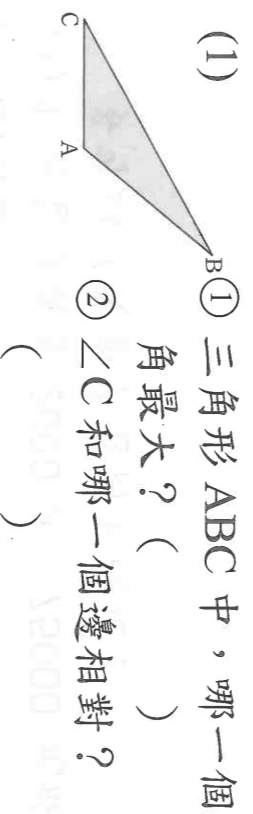 (1)
B
C
A
① 三角形 ABC 中，哪一個
角最大？（ ）
② ∠C 和哪一個邊相對？
（ ）